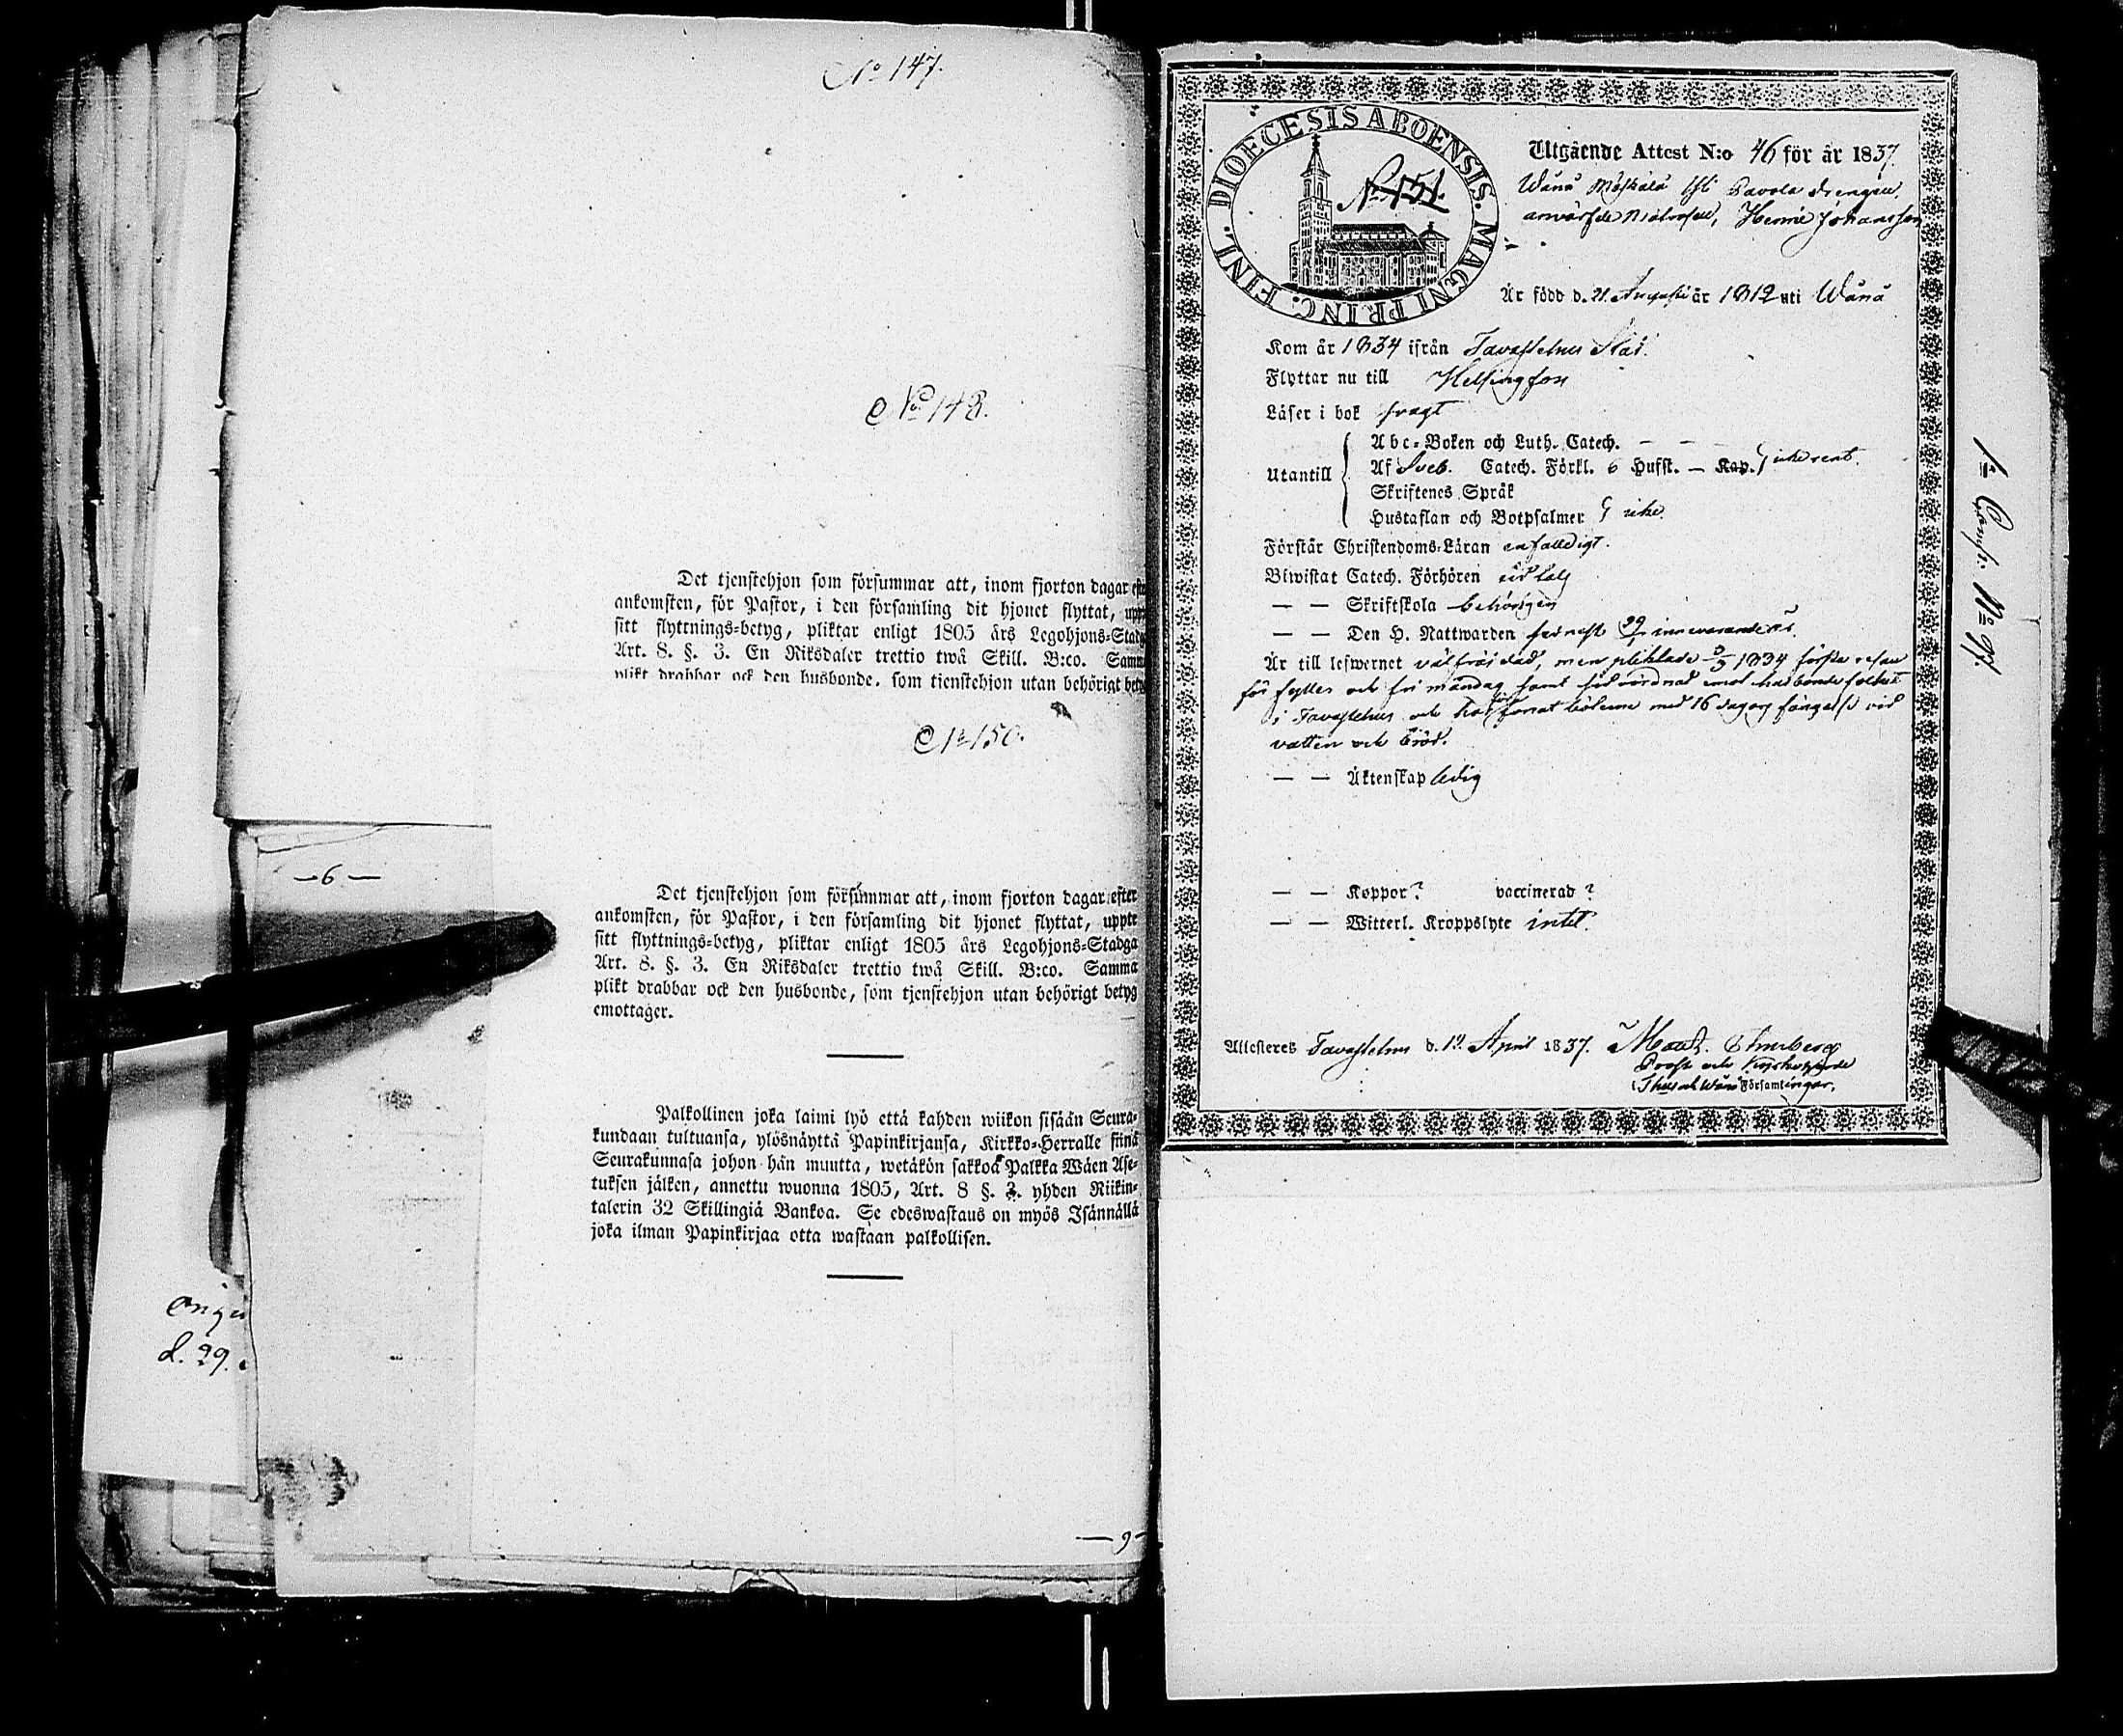 No 147.
No 148.
Det tjenstehjon som försummar att, inom fjorton dagar
ankomsten, för Pastor, i den församling dit hjonet flyttat,
sitt flyttnings-betyg, pliktar enligt 1805 års Legohjons-Stadg
Art. 8. §. 3. En Riksdaler trettio twå Skill. B:co. Samm
plikt drabbar ock den husbonde, som tjenstehjon utan behörigt bety
No 150.
—6—
Det tjenstehjon som försummar att, inom fjorton dagar efter
ankomsten, för Pastor, i den församling dit hjonet flyttat, uppte
sitt flyttnings-betyg, pliktar enligt 1805 års Legohjons-Stadga
Art. 8. §. 3. En Riksdaler trettio twå Skill. B:co. Samma
plikt drabbar ock den husbonde, som tjenstehjon utan behörigt betyg
emottager.
Palkollinen joka laimi lyö että kahden wiikon sisään Seura-
kundaan tultuansa, ylösnäyttä Papinkirjansa, Kirkko-Herralle siinä
Seurakunnasa johon hän muutta, wetäkön sakkoa Palkka Wäen Ase-
tuksen jälken, annettu wuonna 1805, Art. 8 §. 3. yhden Riikin-
talerin 32 Skillingiä Bankoa. Se edeswastaus on myös Isännällä
joka ilman Papinkirjaa otta wastaan palkollisen.
d. 29.
— 9 —
DIOECESIS ABOENSIS. MAGNI PRINC. FINL.
No 151.
Utgående Attest N:o 46 för år 1837.
Wånå Mäskälä Pavola drengen,
Henric Johansson
Är född d. 21. Augusti år 1812 uti Wånå
Kom år 1834 ifrån Tavastehus Stad.
Flyttar nu till Helsingfors
Läser i bok svagt
Utantill
Abc-Boken och Luth. Catech. — —
Af Sveb. Catech. Förkl. 6 Hufst. — Kap. icke rent.
Skriftenes Språk
Hustaflan och Botpsalmer icke.
Förstår Christendoms-Läran enfaldigt.
Biwistat Catech. Förhören
— — Skriftskola behörigen
— — Den H. Nattwarden sednast innevarande år.
Är till lefwernet välfräjdad, men pliktade 1834 första resan
för fylleri och fri måndag samt emot husbonde folket
i Tavastehus och har böterne med 16 dagars fängelse vid
vatten och bröd.
— — Äktenskap ledig
— — Koppor? vaccinerad?
— — Witterl. Kroppslyte intet.
Attesteras Tavastehus d. 19. April 1837.
Prost och Kyrkoherde
Församlingar.
No 97.